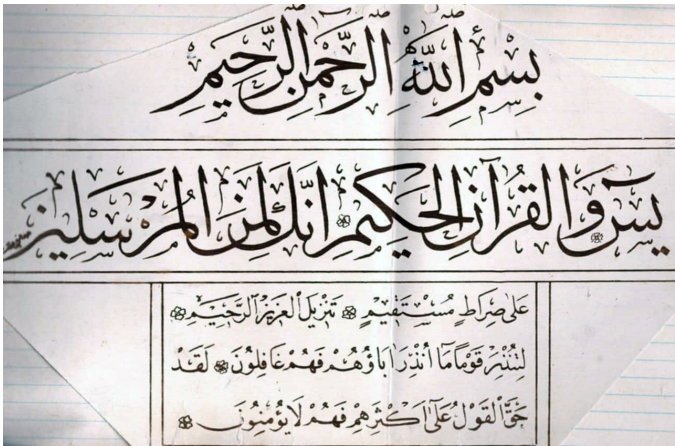 بِسْمِ اللّٰهِ الرَّحْمٰنِ الرَّحِيْمِ
يسٓ ۝ وَالْقُرْآنِ الْحَكِيْمِ ۝ اِنَّكَ لَمِنَ الْمُرْسَلِيْنَ
عَلٰى صِرَاطٍ مُسْتَقِيْمٍ ۝ تَنْزِيْلَ الْعَزِيْزِ الرَّحِيْمِ ۝
لِتُنْذِرَ قَوْمًا مَا أُنْذِرَ اٰبَاؤُهُمْ فَهُمْ غَافِلُوْنَ ۝ لَقَدْ
حَقَّ الْقَوْلُ عَلٰى اَكْثَرِهِمْ فَهُمْ لَا يُؤْمِنُوْنَ ۝